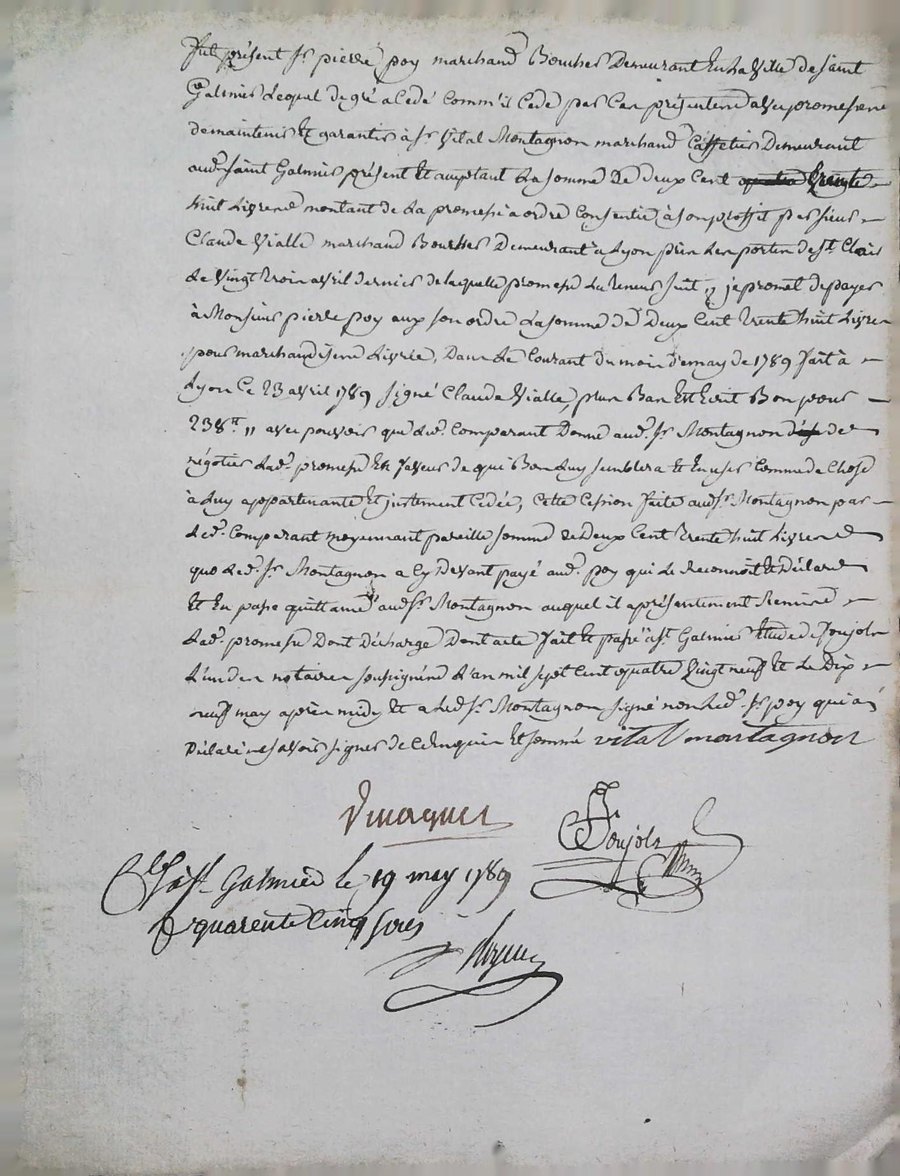 fut présent Sr pierre poy marchand Boucher Demeurant En La Ville de saint
Galmier Lequel de gré a Cédé Comm'il Cede par Ces présentes avec promesse
de maintenir Et garantir à Sr Vital Montagnon marchand Caffetier Demeurant
aud. saint Galmier présent Et acceptant La somme De deux Cent quatre trente
huit Livres montant de La promesse à ordre Consentie à son proffit par sieur
Claude Vialle marchand Boucher Demeurant à Lyon près Les portes de St. Clair
Le Vingt trois avril dernier de laquelle promesse La teneur suit ,, je promet de payer
à Monsieur pierre poy aux son ordre La somme de Deux Cent trente huit Livres
pour marchandises Livrée, Dans Le Courant du mois de may de 1789 fait à
Lyon Ce 23 avril 1789 signé Claude Vialle, plus Bas Est Ecrit Bon pour
238tt ,, avec pouvoir que Led. Comparant Donne aud. Sr Montagnon de
négotier Lad. promesse En faveur de qui Bon Luy semblera Et En user Comme de Chose
à Luy appartenante Et justement Cédée, Cette Cession faite aud. Sr Montagnon par
Led. Comparant moyennant pareille somme de Deux Cent trente huit Livres
que Led. Sr Montagnon a Cy Devant payé aud. poy qui Le Reconnoit Et Déclare
Et En passe quittance aud. Sr Montagnon auquel il a présentement Remis
Lad. promesse Dont Décharge Dont acte fait Et passé à St. Galmier Etude de Joujols
L'un des notaires soussignés L'an mil sept Cent quatre Vingt neuf Et Le Dix
neuf may après midy Et a Led. Sr Montagnon signé non Led. Sr poy qui a
Déclaré ne savoir signer de Ce Enquis Et sommé vital montagnon
Joujols
Clé à St. Galmier le 19 may 1789
R quarente Cinq sous